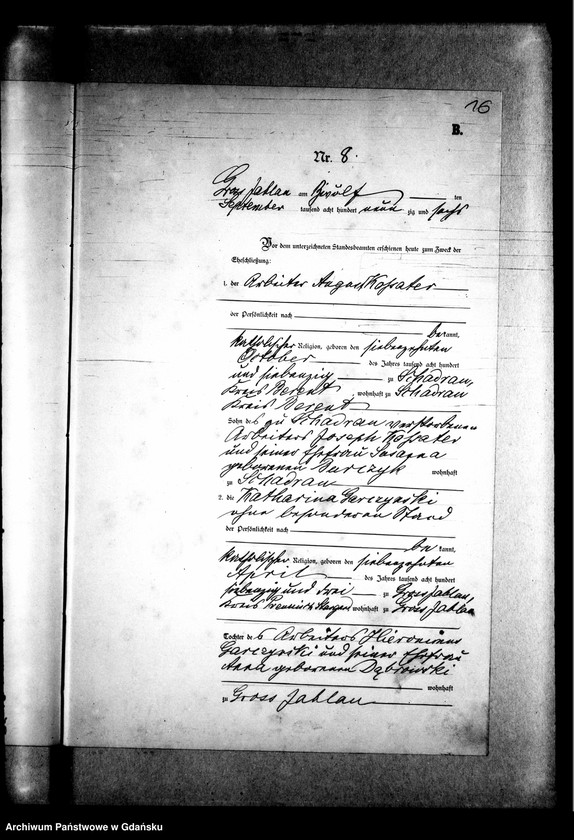 16
B.
Nr. 8.
Gross Jablau am zwölf ten
September tausend acht hundert neun zig und sechs
Vor dem unterzeichneten Standesbeamten erschienen heute zum Zweck der
Eheschließung:
1. der Arbeiter August Kossater
der Persönlichkeit nach
be kannt,
katholischer Religion, geboren den siebenzehnten
October des Jahres tausend acht hundert
und siebenzig zu Schadrau,
Kreis Berent, wohnhaft zu Schadrau
Kreis Berent
Sohn des zu Schadrau verstorbenen
Arbeiters Joseph Kossater
und seiner Ehefrau Susanna
geborenen Burczyk wohnhaft
zu Schadrau
2. die Katharina Garczynski
ohne besonderen Stand
der Persönlichkeit nach
be kannt,
katholischer Religion, geboren den siebenzehnten
April des Jahres tausend acht hundert
siebenzig und drei zu Gross Jablau,
Kreis Preussisch Stargard wohnhaft zu Gross Jablau
Tochter des Arbeiters Hieronimus
Garczynski und seiner Ehefrau
Anna geborenen Dąbrowski
wohnhaft
zu Gross Jablau
Archiwum Państwowe w Gdańsku